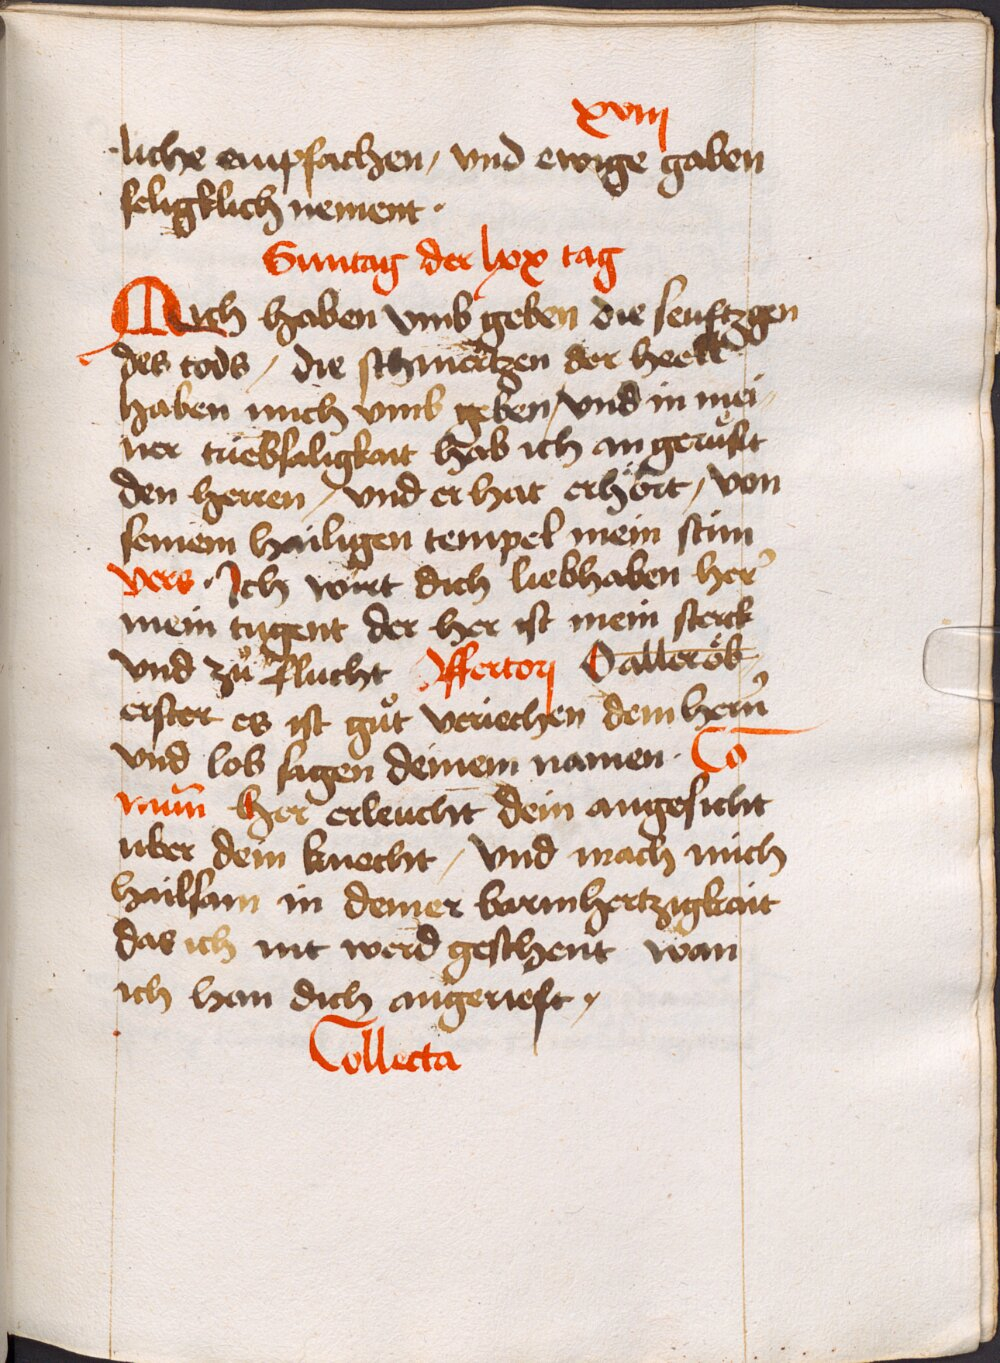 xviij
liche empfachen / vnd ewige gaben
seligklich nement ·
Suntag der lxx tag
Mich haben vmb geben die seuftzgen
des tods / die schmertzen der hell
haben mich vmb geben / vnd in mei
ner truebsaligkait hab ich an gerůfft
den herren / vnd er hat erhört / von
seinem hailigen tempel mein stim
vers · Ich würt dich liebhaben her
mein tugent der her ist mein sterck
vnd zů flucht Offertorj O alleröb
erster es ist gůt veriechen dem herñ
vnd lob sagen deinem namen · Co
mun̄ Her erleucht dein angesicht
uber dein knecht / vnd mach mich
hailsam in deiner barmhertzigkait
das ich nit werd geschent wan
ich han dich angerieft /
Collecta